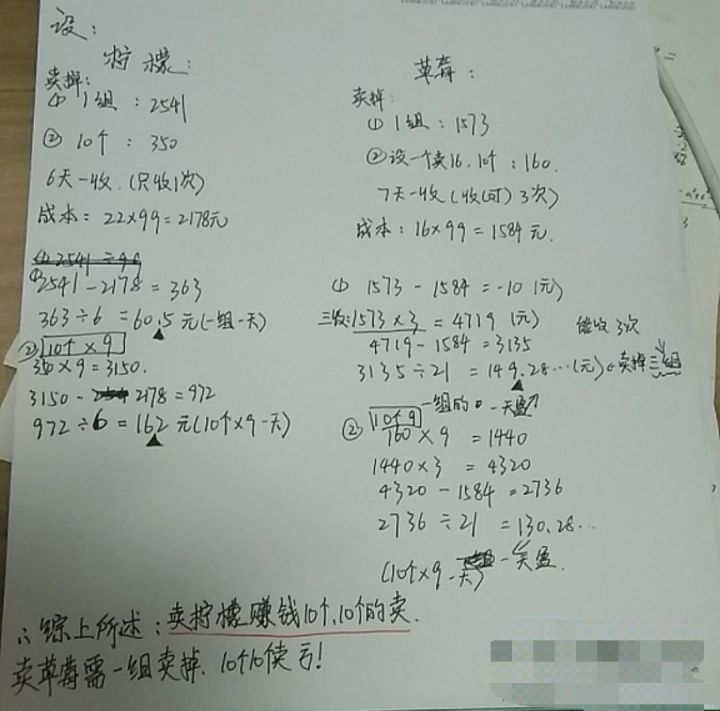 设：
柠檬：
卖掉：
① 1组：2541
② 10个：350
6天一收.(只收1次)
成本：22×99=2178元
① 2541÷99
① 2541-2178=363
363÷6=60.5元(一组一天)
② 10个×9
350×9=3150.
3150-2178=972
972÷6=162元(10个×9一天)
草莓：
卖掉：
① 1组：1573
② 设一个卖16,10个：160.
7天一收(收(可)3次)
成本：16×99=1584元.
① 1573-1584=-10(元)
三级:1573×3=4719(元) 能收3次
4719-1584=3135
3135÷21=149.28…(元)←卖掉三组
一组的 一天盈
② 10个9
160×9=1440
1440×3=4320
4320-1584=2736
2736÷21=130.28…
(10个×9一天) 一天盈.
∴综上所述：卖柠檬赚钱10个,10个的卖.
卖草莓需一组卖掉.10个10个卖亏!